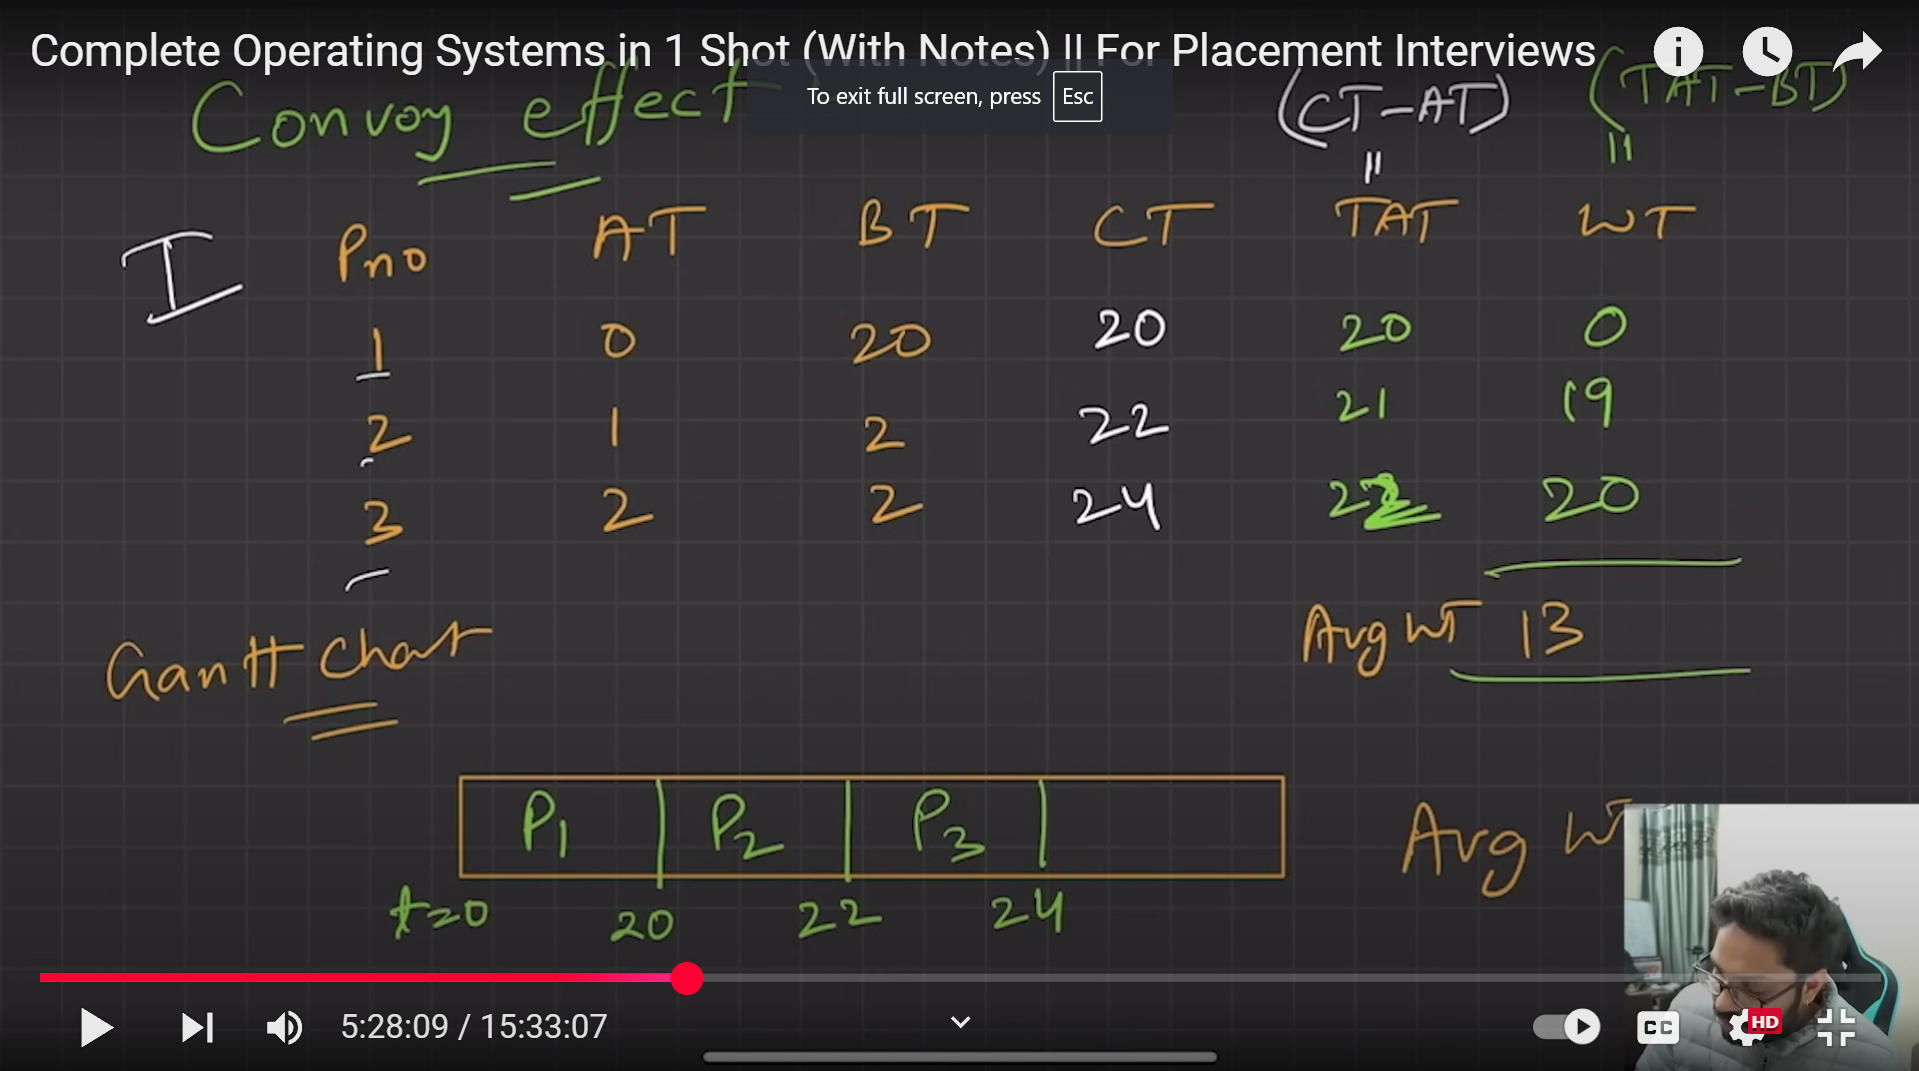 Complete Operating Systems in 1 Shot (With Notes) || For Placement Interviews
To exit full screen, press Esc
Convoy effect
(CT-AT) (TAT-BT)
= =
I Pno AT BT CT TAT WT
1 0 20 20 20 0
2 1 2 22 21 19
3 2 2 24 22 20
Avg WT 13
Gantt Chart
P1 P2 P3
t=0 20 22 24
Avg WT
5:28:09 / 15:33:07
CC HD